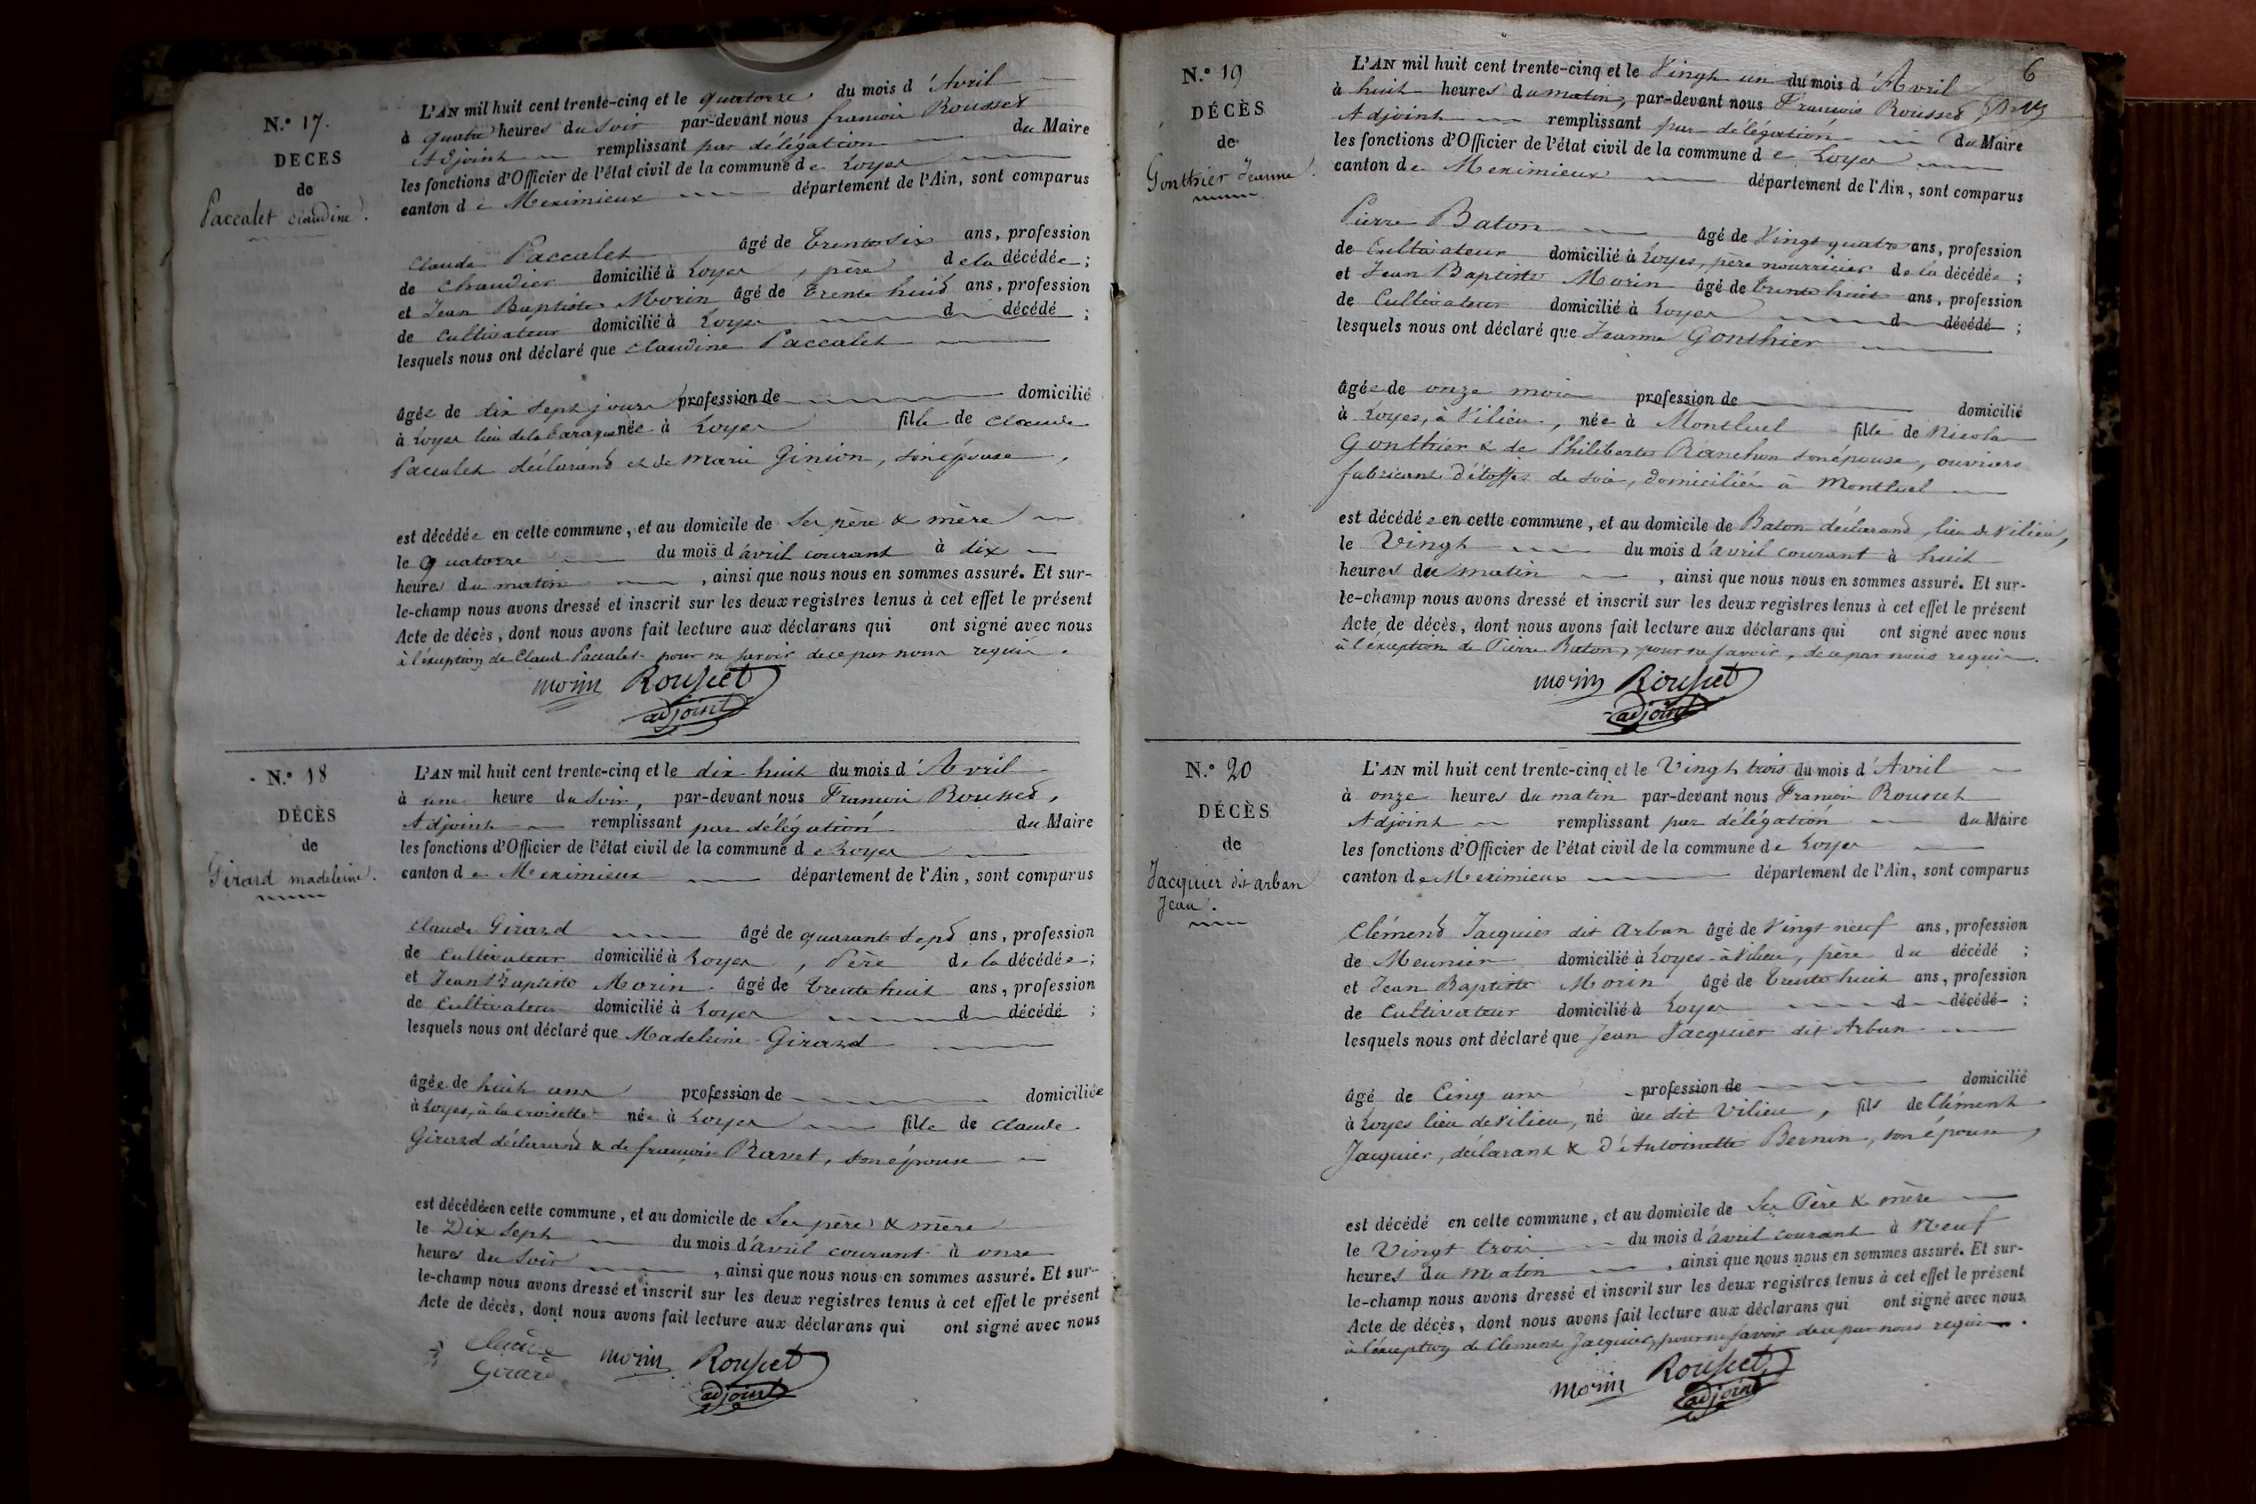 N.º 17.
DECES
de
Paccalet claudine.
L'AN mil huit cent trente-cinq et le quatorze du mois d'Avril
à quatre heures du soir par-devant nous françois Rousset
Adjoint remplissant par délégation du Maire
les fonctions d'Officier de l'état civil de la commune de Loyes
canton de Meximieux département de l'Ain, sont comparus
Claude Paccalet âgé de trente six ans, profession
de domicilié à Loyes, père de la décédée ;
et Jean Baptiste Morin âgé de trente huit ans, profession
de cultivateur domicilié à Loyes d décédé ;
lesquels nous ont déclaré que claudine Paccalet
âgée de dix sept jours profession de domicilié
à Loyes lieu de la née à Loyes fille de claude
Paccalet déclarant et de marie Ginion, son épouse,
est décédée en cette commune, et au domicile de ses père & mère
le quatorze du mois d'avril courant à dix
heures du matin, ainsi que nous nous en sommes assuré. Et sur-
le-champ nous avons dressé et inscrit sur les deux registres tenus à cet effet le présent
Acte de décès, dont nous avons fait lecture aux déclarans qui ont signé avec nous
à l'éxception de Claude Paccalet pour ne savoir de ce par nous requis.
morin Rousset
adjoint
N.º 18
DÉCÈS
de
Girard madeleine.
L'AN mil huit cent trente-cinq et le dix-huit du mois d'Avril
à une heure du soir, par-devant nous François Rousset,
Adjoint remplissant par délégation du Maire
les fonctions d'Officier de l'état civil de la commune de Loyes
canton de Meximieux département de l'Ain, sont comparus
Claude Girard âgé de quarante sept ans, profession
de cultivateur domicilié à Loyes, Père de la décédée ;
et Jean Baptiste Morin âgé de trente huit ans, profession
de cultivateur domicilié à Loyes d décédé ;
lesquels nous ont déclaré que Madeleine Girard
âgée de huit ans profession de domiciliée
à Loyes, à la croisette née à Loyes fille de claude
Girard déclarant & de françoise Ravet, son épouse
est décédée en cette commune, et au domicile de ses père & mère
le Dix sept du mois d'avril courant à onze
heures du soir, ainsi que nous nous en sommes assuré. Et sur-
le-champ nous avons dressé et inscrit sur les deux registres tenus à cet effet le présent
Acte de décès, dont nous avons fait lecture aux déclarans qui ont signé avec nous
Claude
Girard morin Rousset
adjoint
6
N.º 19
DÉCÈS
de
Gonthier Jeanne.
L'AN mil huit cent trente-cinq et le Vingt un du mois d'Avril
à huit heures du matin, par-devant nous François Rousset
Adjoint remplissant par délégation du Maire
les fonctions d'Officier de l'état civil de la commune de Loyes
canton de Meximieux département de l'Ain, sont comparus
Pierre Baton âgé de Vingt quatre ans, profession
de Cultivateur domicilié à Loyes, père nourricier de la décédée ;
et Jean Baptiste Morin âgé de trente huit ans, profession
de Cultivateur domicilié à Loyes d décédé ;
lesquels nous ont déclaré que Jeanne Gonthier
âgée de onze mois profession de domicilié
à Loyes, à Vilieu, née à Montluel fille de Nicolas
Gonthier & de Philiberte Ranchon son épouse, ouvriers
fabricants d'étoffes de soie, domiciliés à Montluel
est décédée en cette commune, et au domicile de Baton déclarant, lieu de Vilieu,
le Vingt du mois d'avril courant à huit
heures du matin, ainsi que nous nous en sommes assuré. Et sur-
le-champ nous avons dressé et inscrit sur les deux registres tenus à cet effet le présent
Acte de décès, dont nous avons fait lecture aux déclarans qui ont signé avec nous
à l'éxception de Pierre Baton, pour ne savoir, de ce par nous requis.
morin Rousset
adjoint
N.º 20
DÉCÈS
de
Jacquier dit arban
Jean.
L'AN mil huit cent trente-cinq et le Vingt trois du mois d'Avril
à onze heures du matin par-devant nous François Rousset
Adjoint remplissant par délégation du Maire
les fonctions d'Officier de l'état civil de la commune de Loyes
canton de Meximieux département de l'Ain, sont comparus
Clément Jacquier dit Arban âgé de Vingt neuf ans, profession
de Meunier domicilié à Loyes-à Vilieu, père du décédé ;
et Jean Baptiste Morin âgé de trente huit ans, profession
de Cultivateur domicilié à Loyes d décédé ;
lesquels nous ont déclaré que Jean Jacquier dit Arban
âgé de Cinq ans profession de domicilié
à Loyes lieu de Vilieu, né au dit Vilieu, fils de Clément
Jacquier, déclarant & d'Antoinette Bernin, son épouse,
est décédé en cette commune, et au domicile de Ses Père & mère
le Vingt trois du mois d'avril courant à Neuf
heures du matin, ainsi que nous nous en sommes assuré. Et sur-
le-champ nous avons dressé et inscrit sur les deux registres tenus à cet effet le présent
Acte de décès, dont nous avons fait lecture aux déclarans qui ont signé avec nous
à l'éxception de Clément Jacquier, pour ne savoir de ce par nous requis.
morin Rousset
adjoint